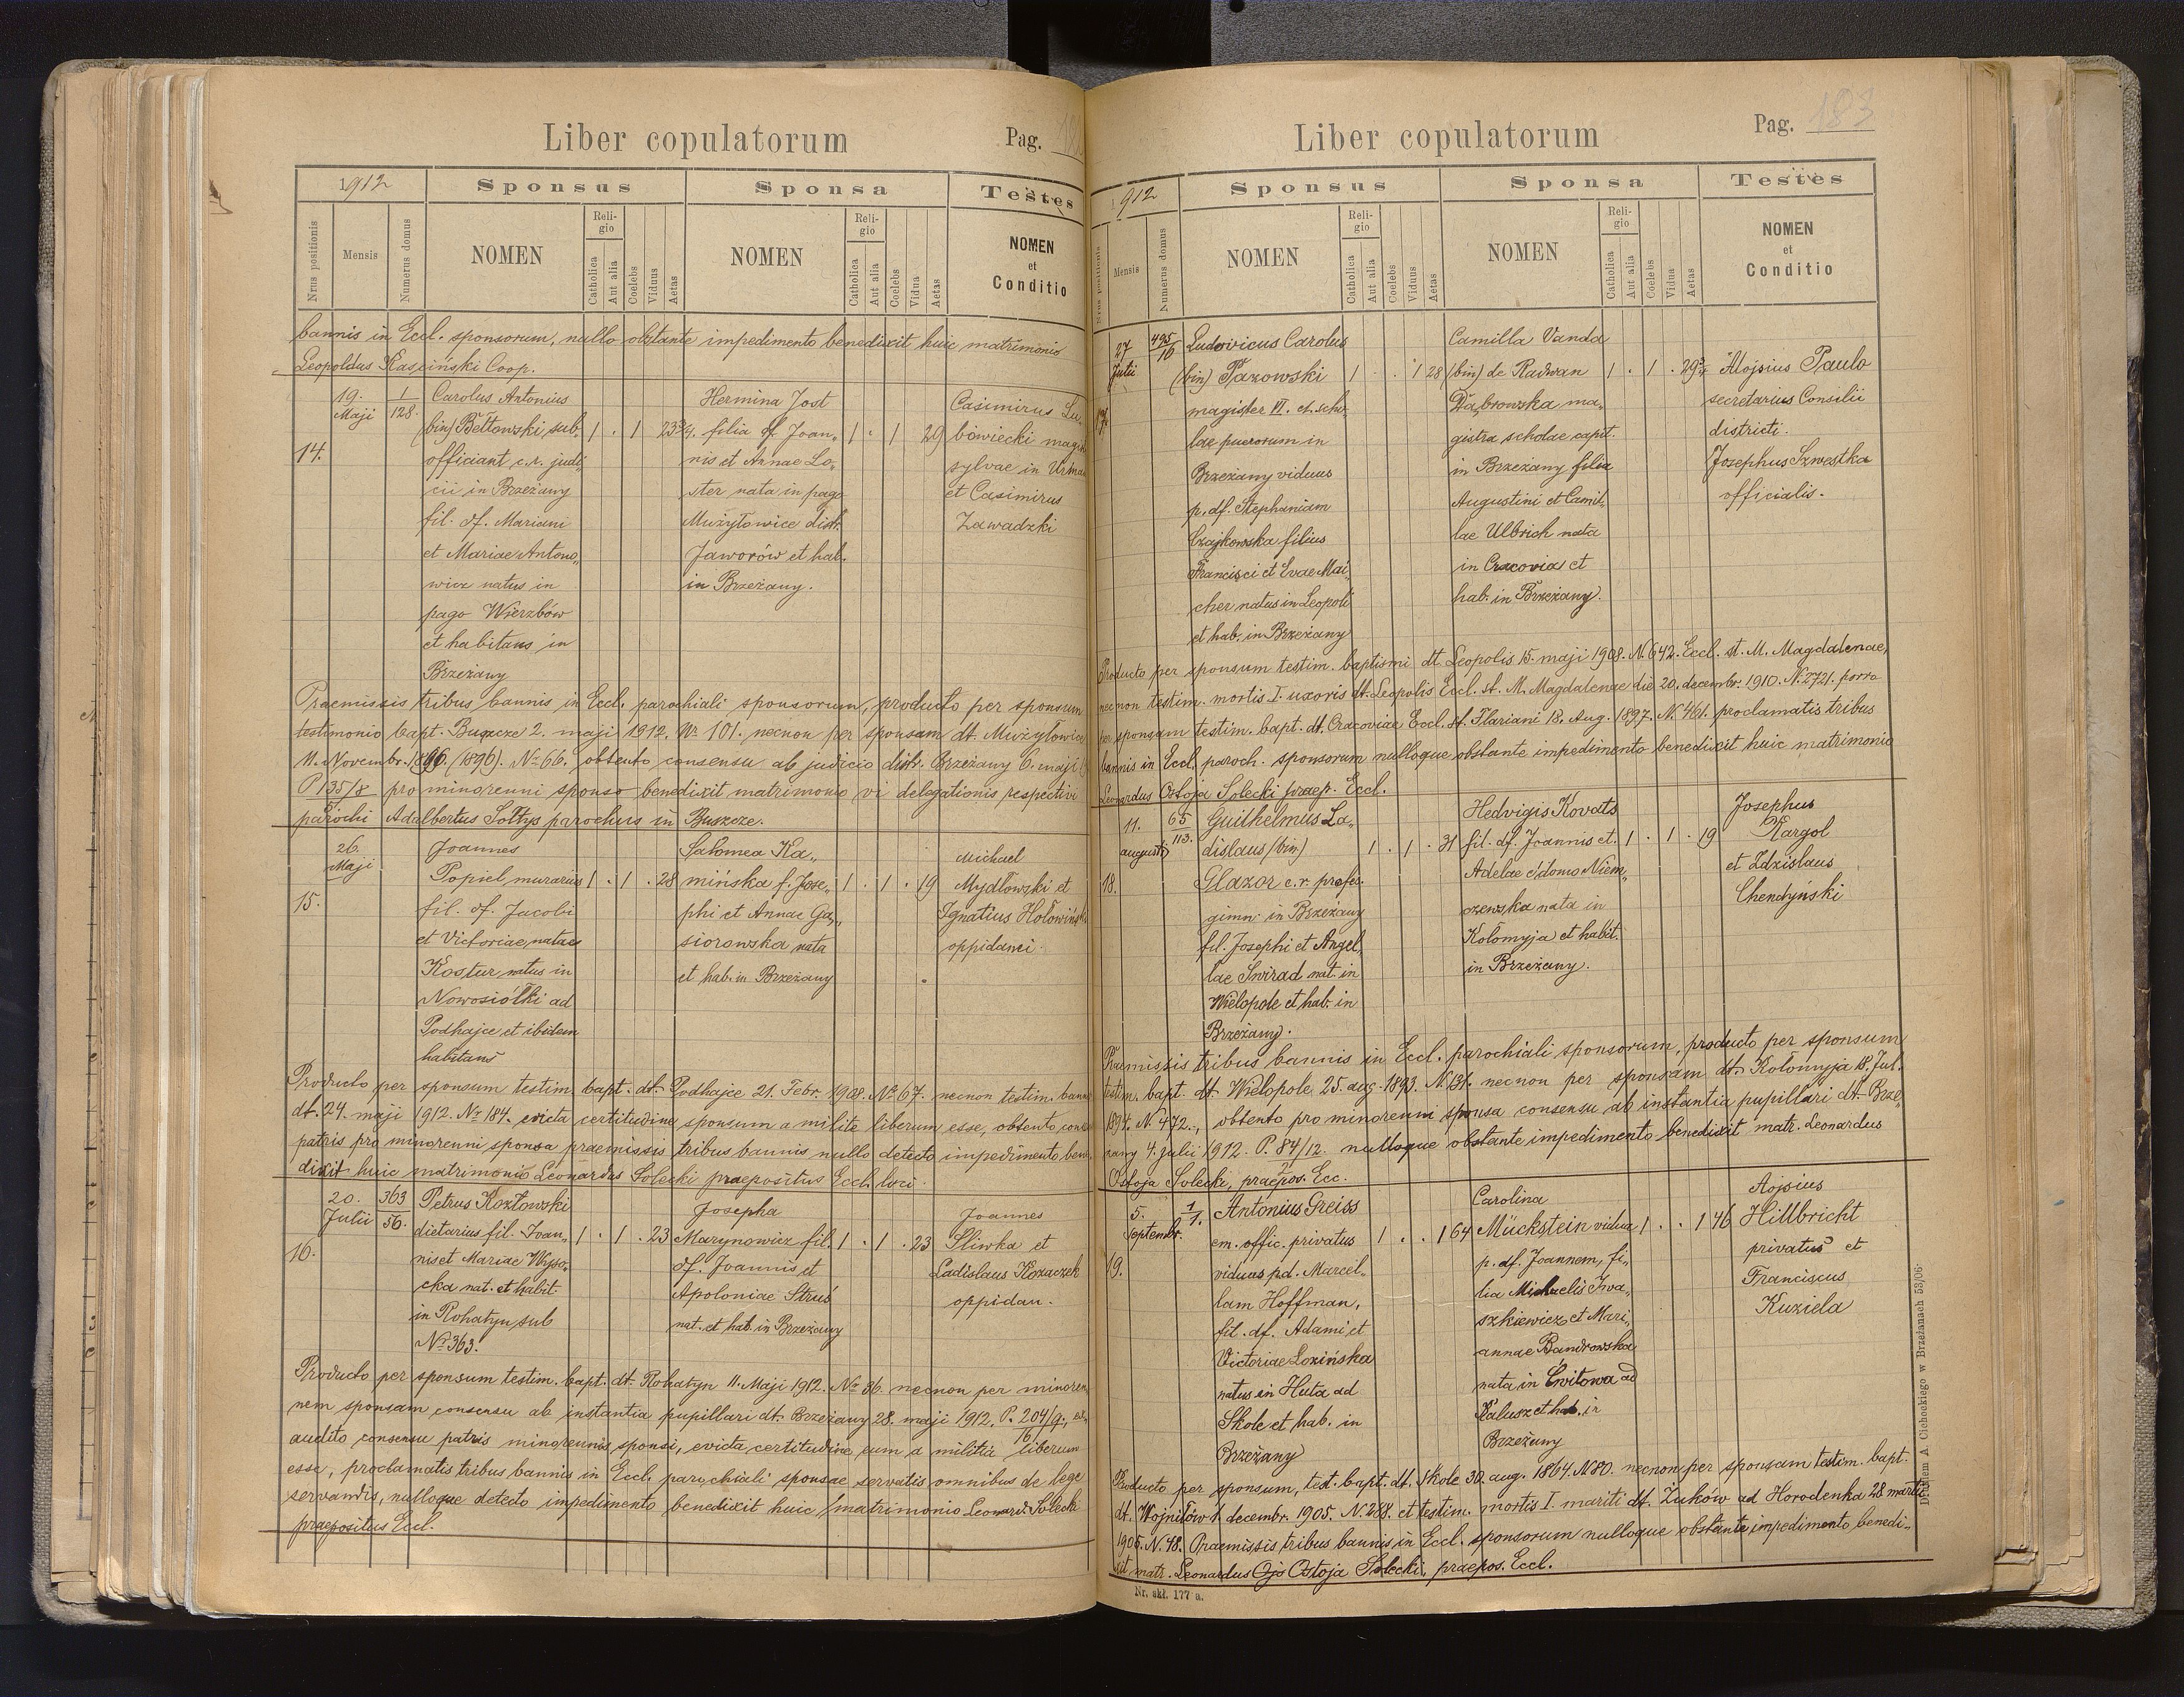 Liber copulatorum
Pag.
1912
Sponsus
Sponsa
Testes
Nrus positionis
Mensis
Numerus domus
NOMEN
Religio
Catholica
Aut alia
Coelebs
Viduus
Aetas
NOMEN
Religio
Catholica
Aut alia
Coelebs
Vidua
Aetas
NOMEN
et
Conditio
bannis in Eccl. sponsorum, nullo obstante impedimento benedixit huic matrimonio
Leopoldus Kasciński Coop.
14.
19. Maji
1/128.
Carolus Antonius
(bin) Bełtowski sub-
officiant c.r. judi-
cii in Brzeżany
fil. df. Mariani
et Mariae Antono-
wicz natus in
pago Wierzbów
et habitans in
Brzeżany
1 . 1 23¾
Hermina Jost
filia df. Joan-
nis et Annae Lo-
ster nata in pago
Mużyłowice distr.
Jaworów et hab.
in Brzeżany.
1 . 1 29
Casimirus Lu-
bowiecki magis
sylvae in Urman
et Casimirus
Zawadzki
Praemissis tribus bannis in Eccl. parochiali sponsorum, producto per sponsum
testimonio bapt. Buszcze 2. maji 1912. Nr 101. necnon per sponsam dt. Mużyłowice
11. Novembr. 1896 (1896). No 66. obtento consensu ab judicio distr. Brzeżany 6. maji
P 135/8 pro minorenni sponso benedixit matrimonio vi delegationis respectivi
parochi Adalbertus Sołtys parochus in Buszcze.
15.
26. Maji
Joannes
Popiel, murarius
fil. df. Jacobi
et Victoriae natae
Kostur natus in
Nowosiółki ad
Podhajce et ibidem
habitans
1 . 1 . 28
Salomea Ka-
mińska f. Jose-
phi et Annae Gą-
siorowska nata
et hab. in Brzeżany
1 . 1 . 19
Michael
Mydłowski et
Ignatius Hołowiński
oppidanei.
Producto per sponsum testim. bapt. dt. Podhajce 21. Febr. 1908. No 67. necnon testim. bann
dt. 24. maji 1912. Nr 184. evicta certitudine, sponsum a milite liberum esse, obtento cons
patris pro minorenni sponsa praemissis tribus bannis nullo detecto impedimento bene
dixit huic matrimonio Leonardus Solecki praepositus Eccl. loci.
16.
20. Julii
363/56.
Petrus Kozłowski
dietarius fil. Joan-
nis et Mariae Wyso-
cka nat. et habit.
in Rohatyn sub
Nr 363.
1 . 1 . 23
Josepha
Marynowicz fil.
df. Joannis et
Apoloniae Struś
nat. et hab. in Brzeżany
1 . 1 . 23
Joannes
Sliwka et
Ladislaus Kozaczek
oppidan.
Producto per sponsum testim. bapt. dt. Rohatyn 11. Maji 1912. No 36. necnon per minoren
nem sponsam consensu ab instantia pupillari dt. Brzeżany 28. maji 1912. P. 204/9,
audito consensu patris minorennis sponsi, evicta certitudine eum a militia liberum
esse, proclamatis tribus bannis in Eccl. parochiali sponsae servatis omnibus de lege
servandis, nulloque detecto impedimento benedixit huic matrimonio Leonardus Solecki
praepositus Eccl.
Liber copulatorum
Pag. 183
1912
Sponsus
Sponsa
Testes
Nrus positionis
Mensis
Numerus domus
NOMEN
Religio
Catholica
Aut alia
Coelebs
Viduus
Aetas
NOMEN
Religio
Catholica
Aut alia
Coelebs
Vidua
Aetas
NOMEN
et
Conditio
17.
27 Julii
495/16
Ludovicus Carolus
(bin) Pazowski
magister VI. cl. scho-
lae puerorum in
Brzeżany viduus
p. df. Stephaniam
Czajkowska filius
Francisci et Evae Mai-
cher natus in Leopoli
et hab. in Brzeżany
1 . . 1 28
Camilla Vanda
(bin) de Radwan
Dąbrowska ma-
gistra scholae capit.
in Brzeżany filia
Augustini et Camil-
lae Ulbrich nata
in Cracovia et
hab. in Brzeżany.
1 . 1 . 29¾
Alojsius Paulo
secretarius Consilii
districti.
Josephus Szwestka
officialis.
Producto per sponsum testim. baptismi dt. Leopolis 15. maji 1908. N. 642. Eccl. st. M. Magdalenae,
necnon testim. mortis I. uxoris dt. Leopolis Eccl. st. M. Magdalenae die 20. decembr. 1910. N. 2721. porro
per sponsam testim. bapt. dt. Cracoviae Eccl. st. Floriani 18. Aug. 1897. N. 461. proclamatis tribus
bannis in Eccl. paroch. sponsorum nulloque obstante impedimento benedixit huic matrimonio
Leonardus Ostoja Solecki praep. Eccl.
18.
11. augusti
65/113.
Guilhelmus La-
dislaus (bin)
Glazor c.r. profes.
gimn. in Brzeżany
fil. Josephi et Angel-
lae Swirad nat. in
Wielopole et hab. in
Brzeżany.
1 . 1 . 31
Hedvigis Kovats
fil. df. Joannis et
Adelae e domo Niem-
czewska nata in
Kołomyja et habit.
in Brzeżany.
1 . 1 . 19
Josephus
Kargol
et Zdzislaus
Chendyński
Praemissis tribus bannis in Eccl. parochiali sponsorum, producto per sponsum
testim. bapt. dt. Wielopole 25. aug. 1893. N. 131. necnon per sponsam dt. Kołomyja 18. Jul.
1894. N. 472., obtento pro minorenni sponsa consensu ab instantia pupillari dt. Brze-
żany 4. julii 1912. P. 84/12 nulloque obstante impedimento benedixit matr. Leonardus
Ostoja Solecki, praepos. Ecc.
19.
5. Septembr.
1/1.
Antonius Greiss
em. offic. privatus
viduus p.d. Marcel-
lam Hoffman,
fil. df. Adami et
Victoriae Łozińska
natus in Huta ad
Skole et hab. in
Brzeżany
1 . . 1 64
Carolina
Mückstein vidua
p. df. Joannem, fi-
lia Michaelis Iwa-
szkiewicz et Mari-
annae Bandrowska
nata in Ćwitowa ad
Kalusz et hab. in
Brzeżany
1 . . 1 46
Aojsius
Hillbricht
privatus et
Franciscus
Kuziela
Producto per sponsum, test. bapt. dt. Skole 30. aug. 1864. N. 80. necnon per sponsam testim. bapt.
dt. Wojniłów 1. decembr. 1905. N. 288. et testim. mortis I. mariti dt. Żuków ad Horodenka 28 martii
1905. N. 48. Praemissis tribus bannis in Eccl. sponsorum nulloque obstante impedimento benedi-
xit matr. Leonardus Ojs Ostoja Solecki, praepos. Eccl.
Nr. skł. 177 a.
Drukiem A. Cichockiego w Brzeżanach 53/06